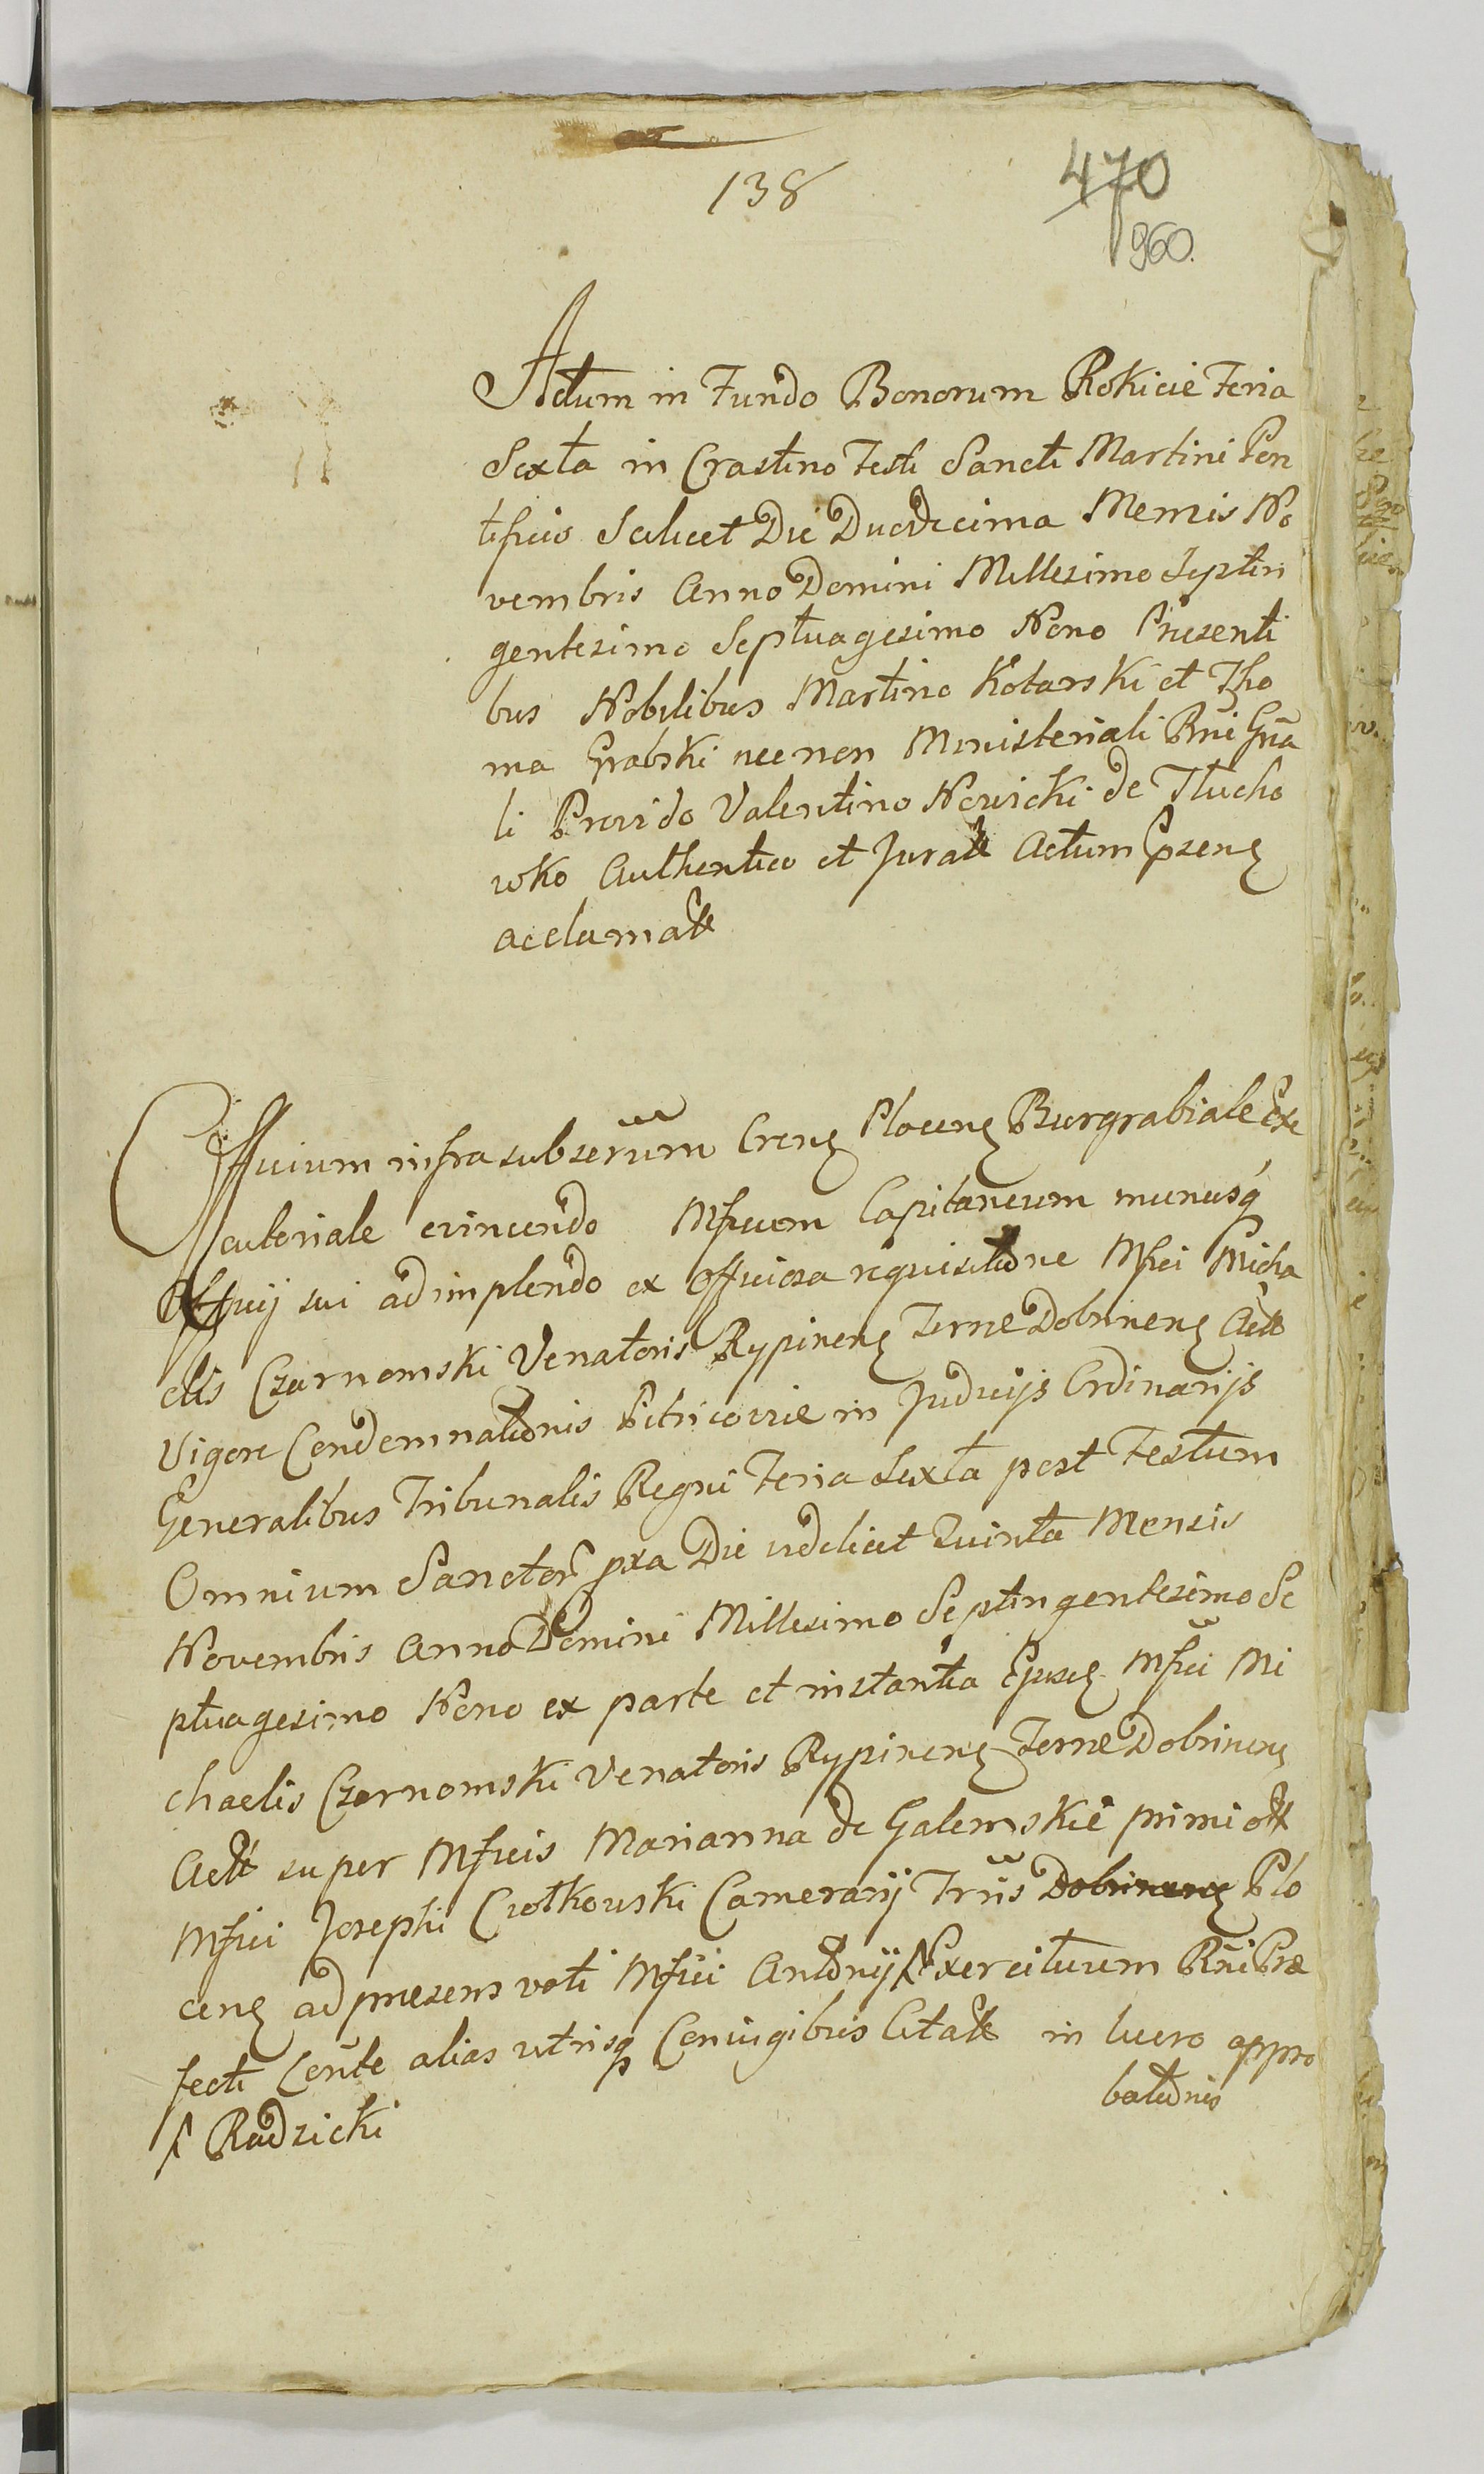 138
470
960.
Actum in Fundo Bonorum Rokicie Feria
Sexta in Crastino Festi Sancti Martini Pon
tificis Scilicet Die Duodecima Mensis No
vembris Anno Domini Millesimo Septin
gentesimo Septuagesimo Nono Presenti
bus Nobilibus Martino Kotarski et Tho
ma Grabski necnon Ministeriali Rñi Gña
li Provido Valentino Nowicki de Tłucho
wko Authentico et Jurato Actum
acclamato
Officium infrasubscrūm Crens Plocens Burgrabiale Exe
cutoriale evincendo Mficum Capitaneum munusq
Officij sui adimplendo ex Officiosa requisitione Mfici Micha
elis Czarnomski Venatoris Rypinens Terræ Dobrinens
Vigore Condemnationis Petricoviæ in Judicijs Ordinarijs
Generalibus Tribunalis Regni Feria Sexta post Festum
Omnium Sanctor pxa Die videlicet Quinta Mensis
Novembris Anno Domini Millesimo Septingentesimo Se
ptuagesimo Nono ex parte et instantia Ejusd Mfici Mi
chaelis Czarnomski Venatoris Rypinens Terræ Dobrinens
super Mficis Marianna de Galemskie primi
Mfici Josephi Ciołkowski Camerarij Trrīs Dobrinens Plo
cens ad præsens voti Mfici Antonij Exercituum Rñi Præ
fecti alias utrisq Conjugibus Citatis in lucro appro
bationis
Radzicki